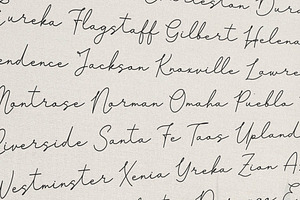 Charleston
Eureka Flagstaff Gilbert Helena
Jackson Knoxville
Montrose Norman Omaha Pueblo
Riverside Santa Fe Taos Upland
Westminster Xenia Yreka Zion